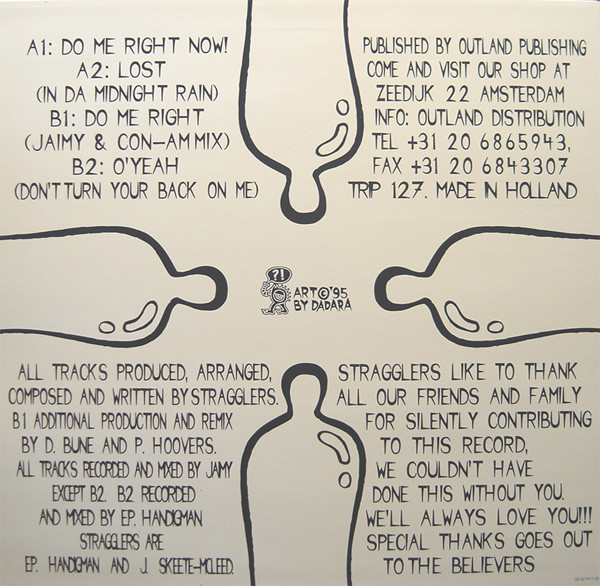 A1: DO ME RIGHT NOW!
A2: LOST
(IN DA MIDNIGHT RAIN)
B1: DO ME RIGHT
(JAIMY & CON-AM MIX)
B2: O'YEAH
(DON'T TURN YOUR BACK ON ME)
PUBLISHED BY OUTLAND PUBLISHING
COME AND VISIT OUR SHOP AT
ZEEDIJK 22 AMSTERDAM
INFO: OUTLAND DISTRIBUTION
TEL +31 20 6865943,
FAX +31 20 6843307
TRIP 127. MADE IN HOLLAND
?!
ART © '95
BY DADARA
ALL TRACKS PRODUCED, ARRANGED,
COMPOSED AND WRITTEN BY STRAGGLERS.
B1 ADDITIONAL PRODUCTION AND REMIX
BY D. BUNE AND P. HOOVERS.
ALL TRACKS RECORDED AND MIXED BY JAIMY
EXCEPT B2. B2 RECORDED
AND MIXED BY EP. HANDIGMAN
STRAGGLERS ARE
EP. HANDIGMAN AND J. SKEETE-MCLEED.
STRAGGLERS LIKE TO THANK
ALL OUR FRIENDS AND FAMILY
FOR SILENTLY CONTRIBUTING
TO THIS RECORD,
WE COULDN'T HAVE
DONE THIS WITHOUT YOU.
WE'LL ALWAYS LOVE YOU!!!
SPECIAL THANKS GOES OUT
TO THE BELIEVERS